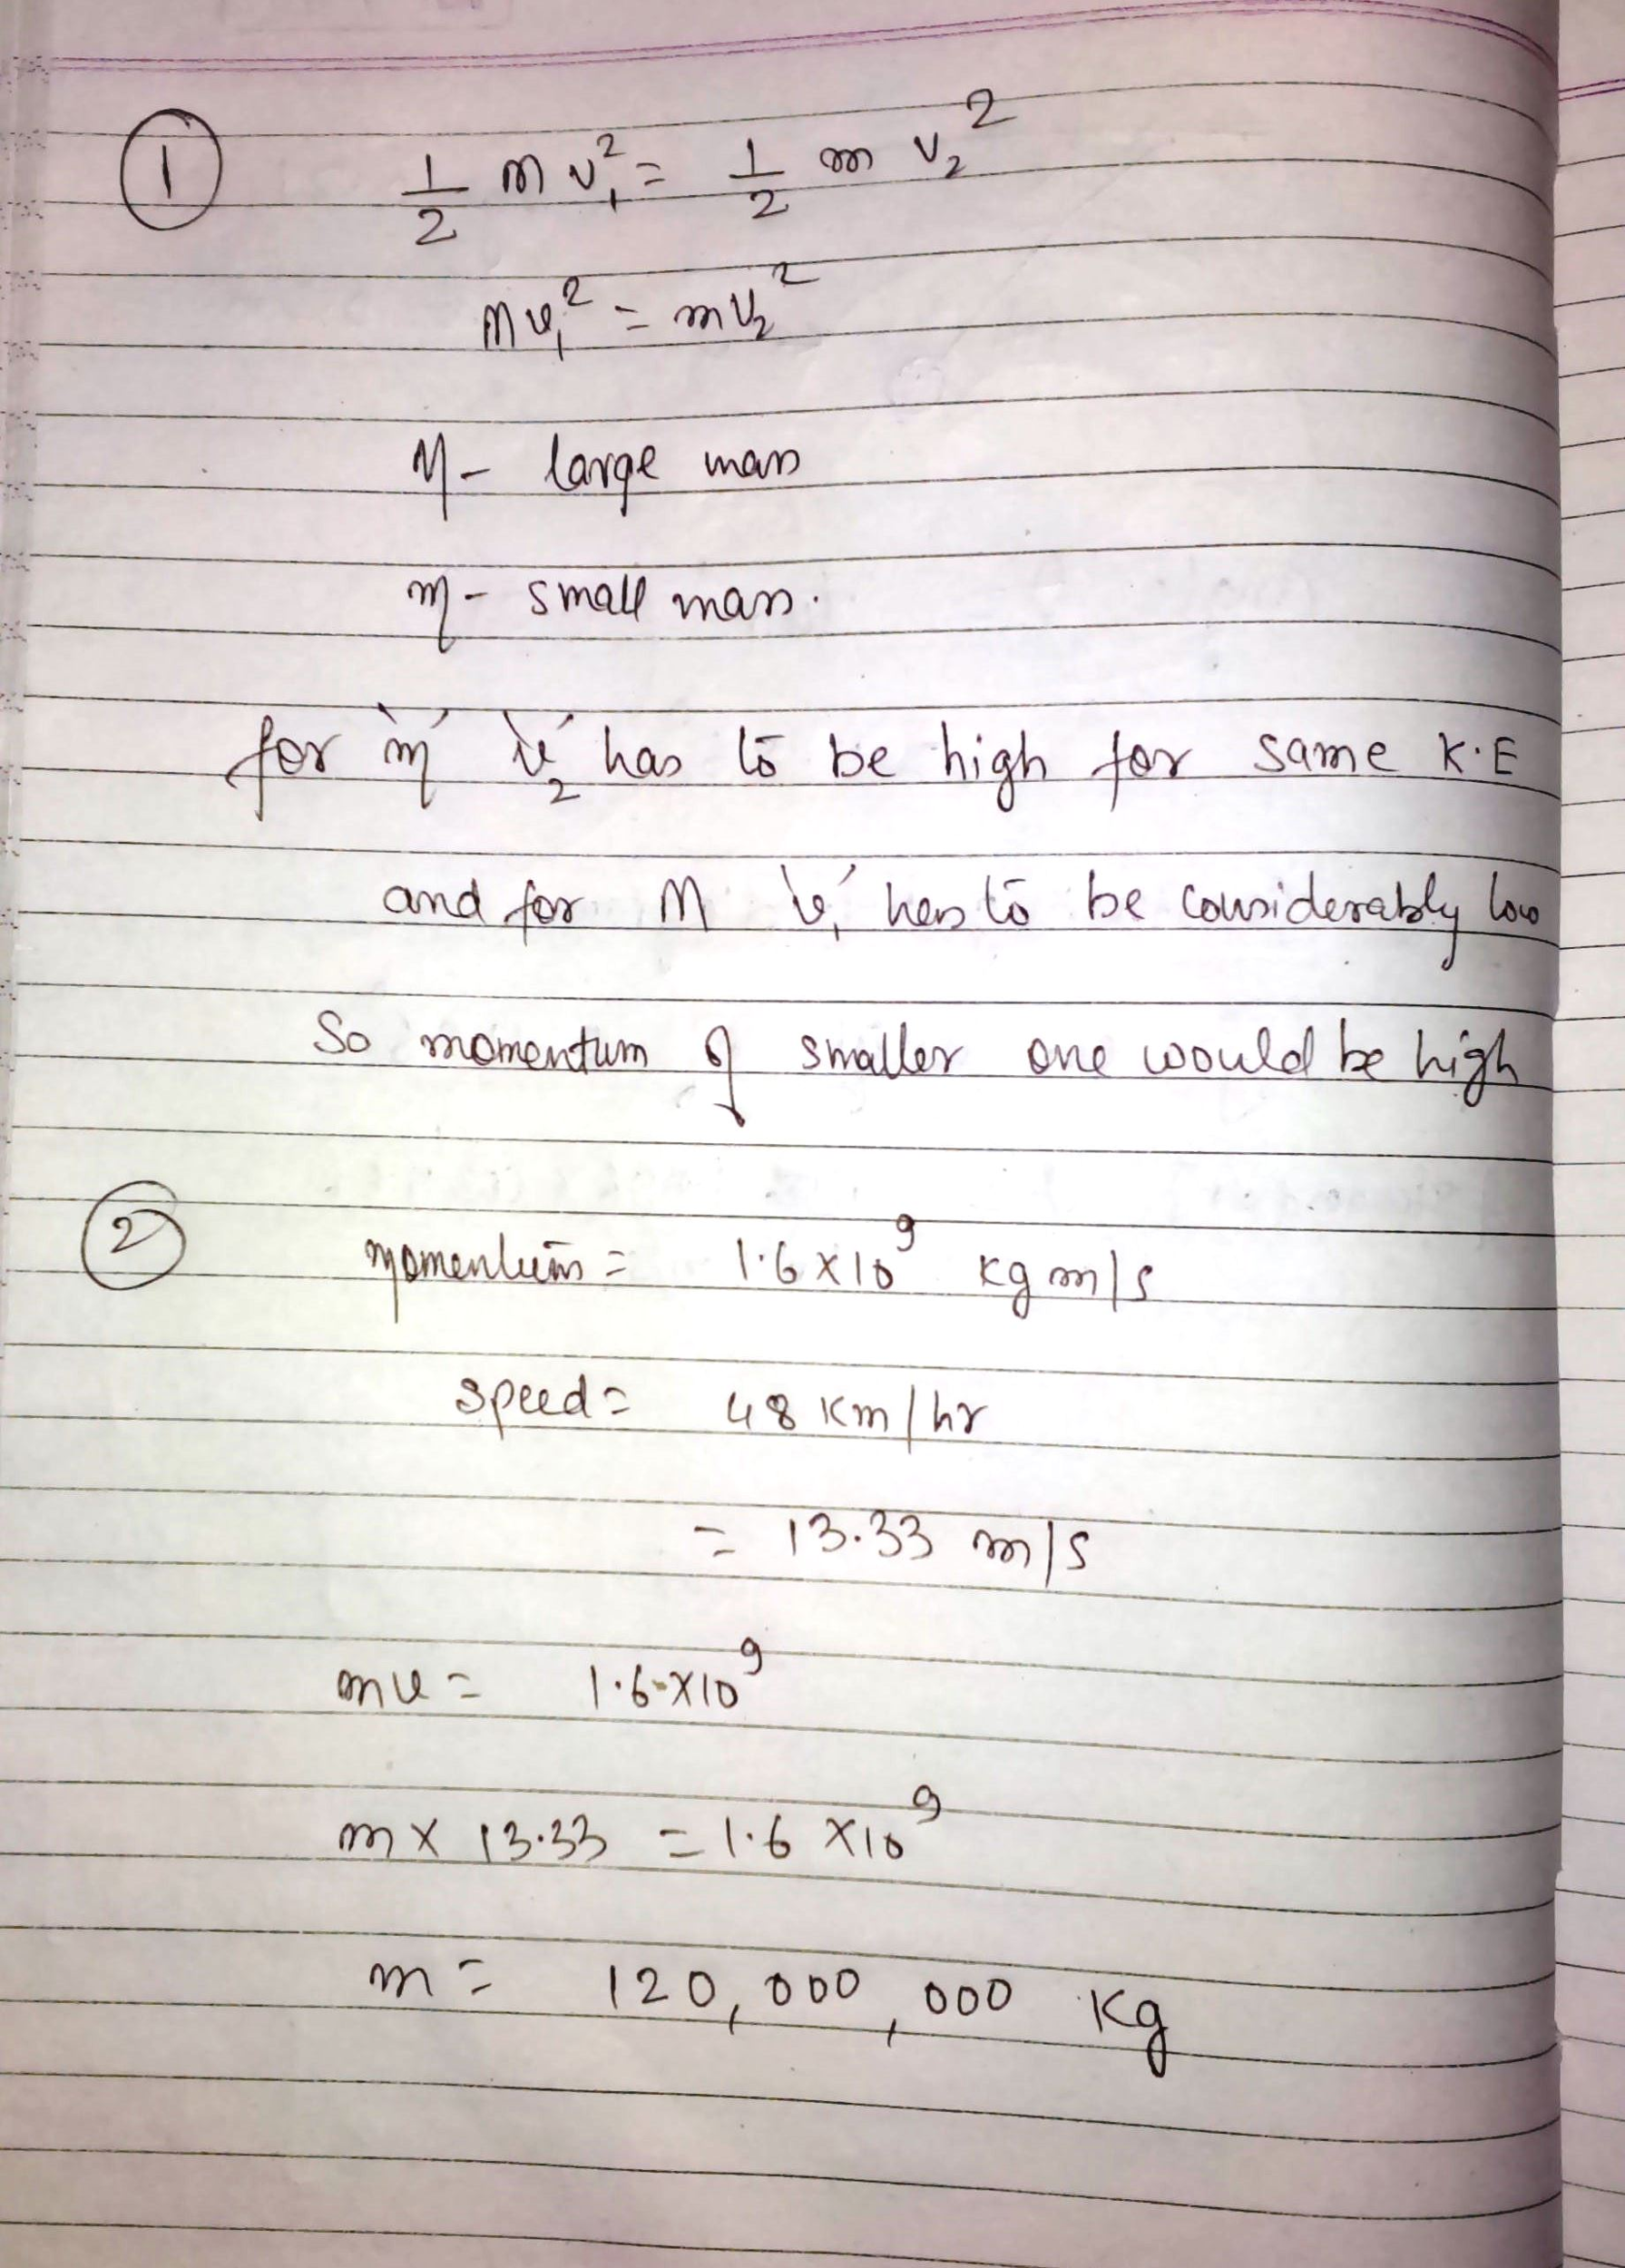 1
1/2 M v₁² = 1/2 m v₂²
Mv₁² = mv₂²
M - large mass
m - small mass.
for 'm' 'v₂' has to be high for same K.E
and for M 'v₁' has to be considerably low
So momentum of smaller one would be high
2
momentum = 1.6 x 10⁹ kg m/s
speed = 48 Km/hr
= 13.33 m/s
mv = 1.6 x 10⁹
m x 13.33 = 1.6 x 10⁹
m = 120,000,000 Kg